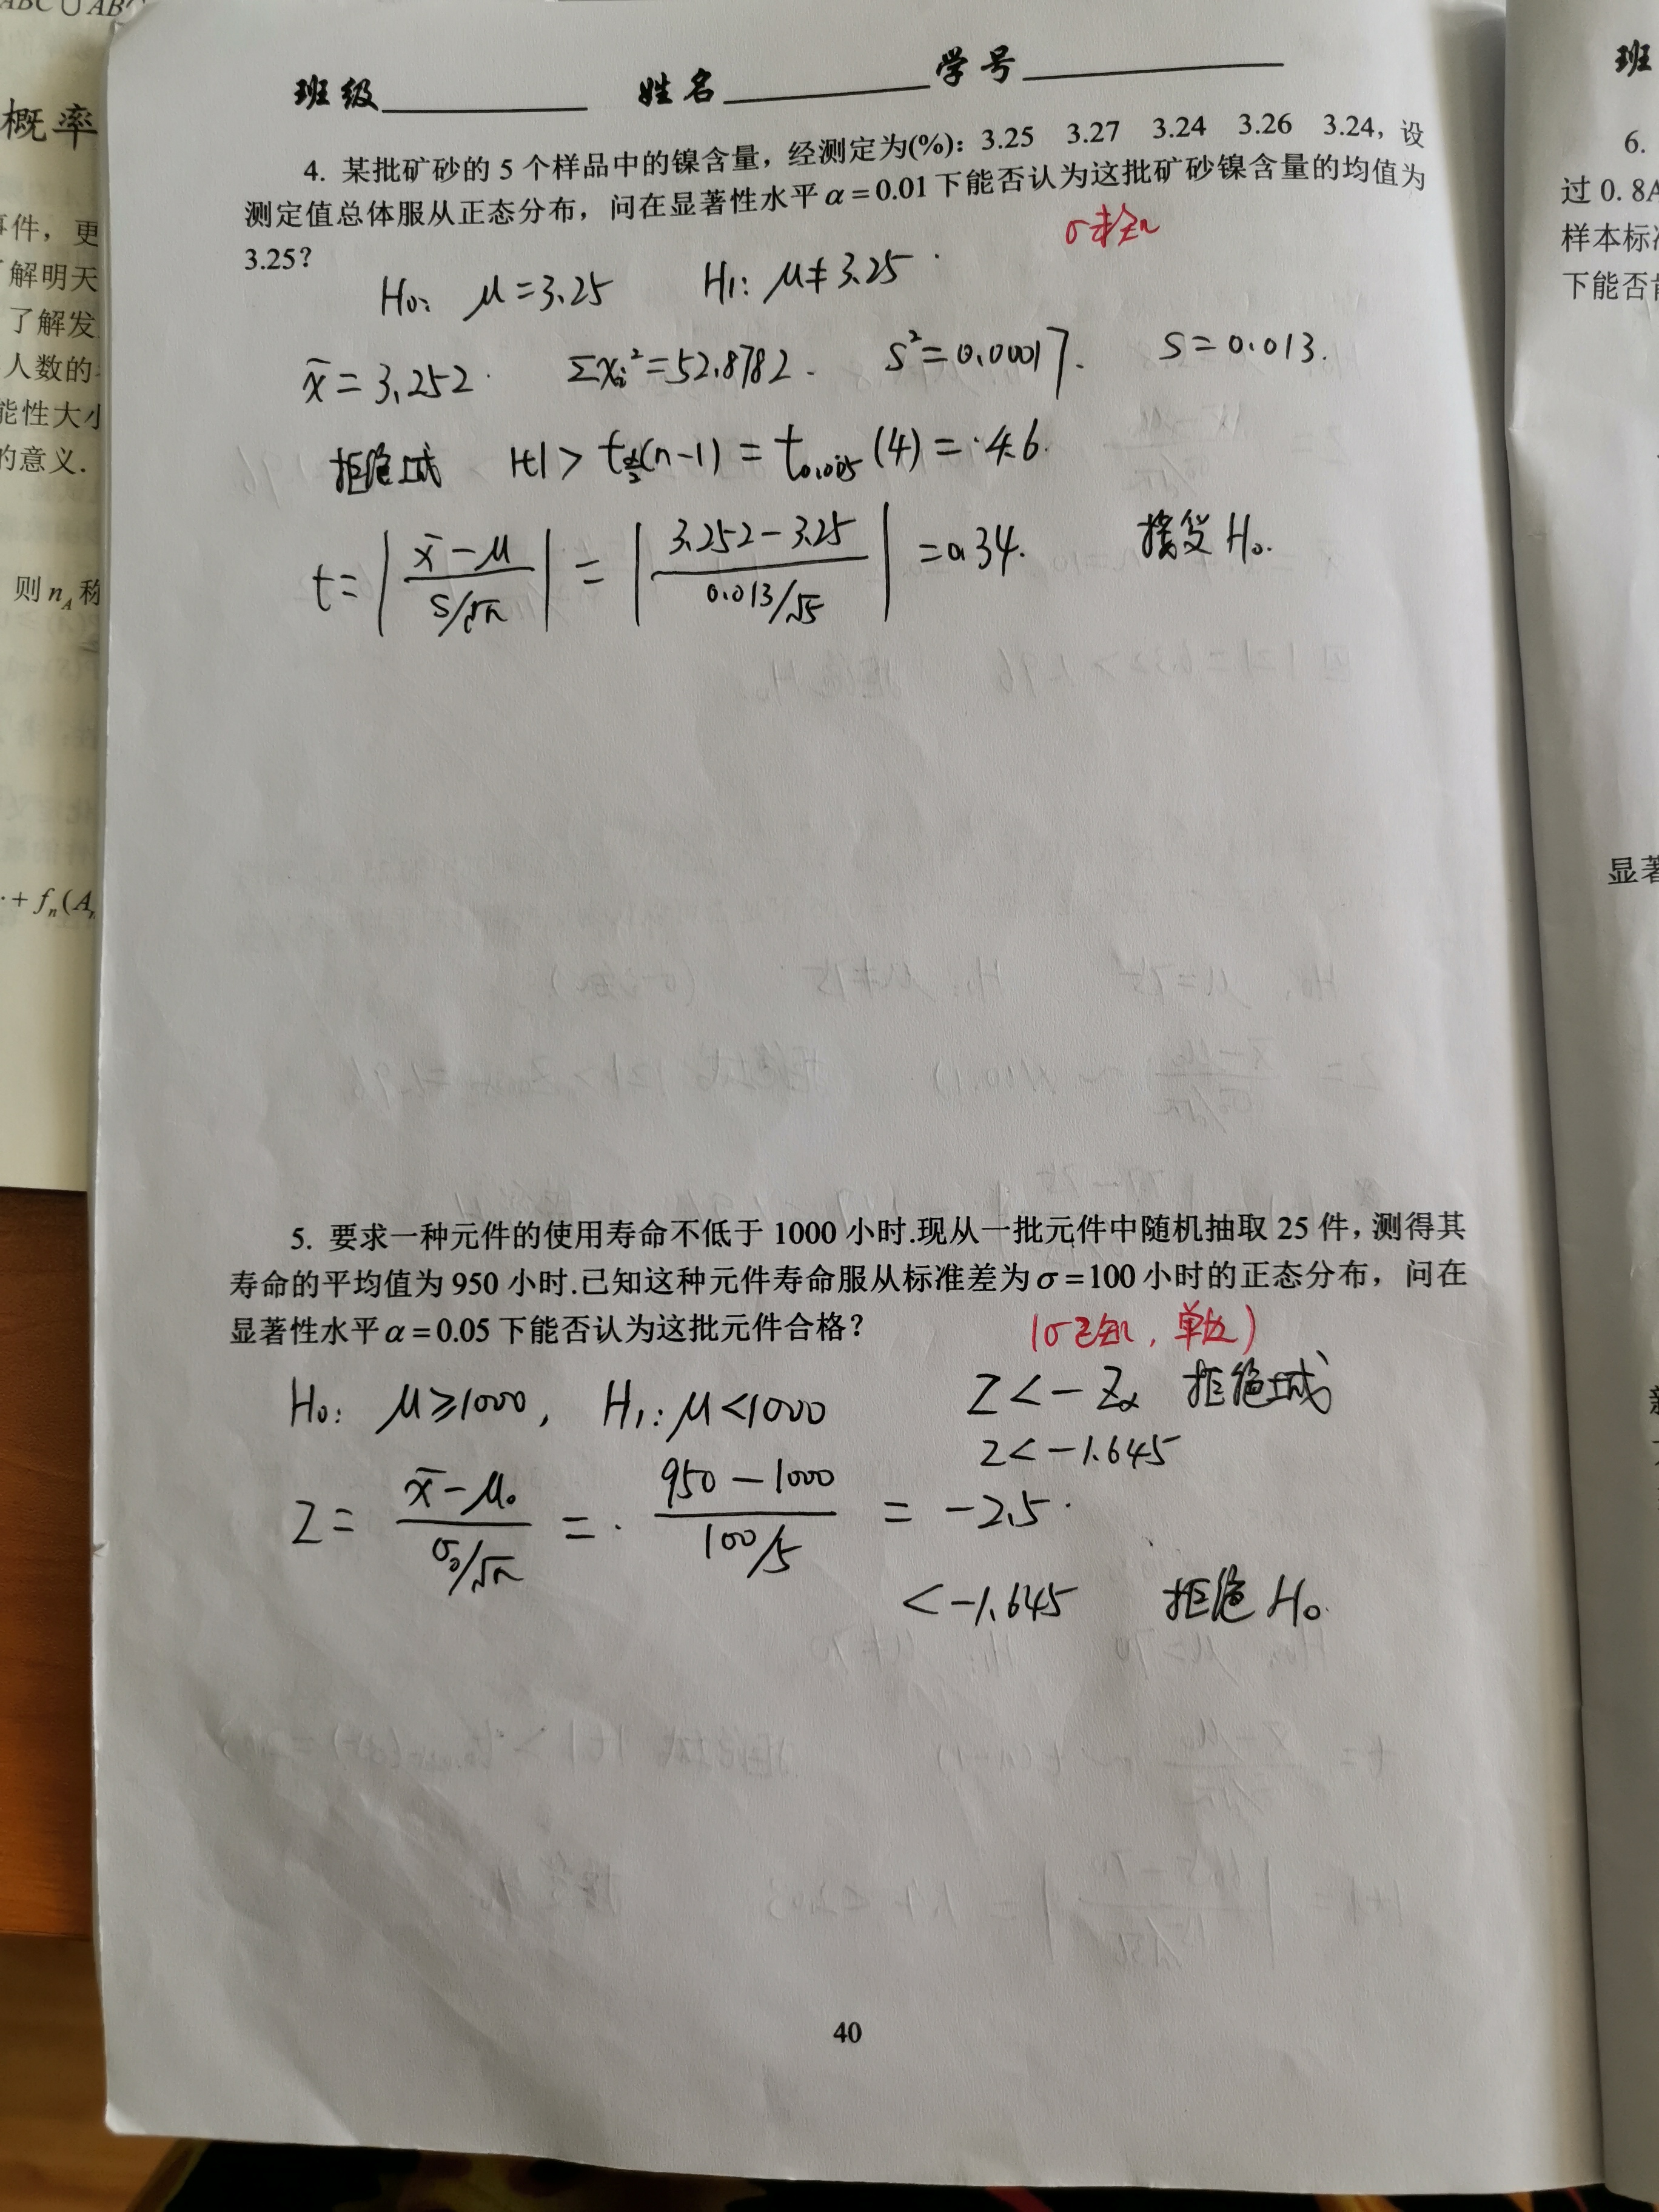 ABC∪AB
概率
事件，更
了解明天
了解发
人数的
能性大小
的意义.
则 n_A 称
·+ f_n(A_
班级 姓名 学号
4. 某批矿砂的 5 个样品中的镍含量，经测定为(%)：3.25 3.27 3.24 3.26 3.24，设
测定值总体服从正态分布，问在显著性水平 α = 0.01 下能否认为这批矿砂镍含量的均值为
3.25?
σ未知
H₀: μ=3.25 H₁: μ≠3.25
x̄=3.252. Σxᵢ²=52.8782. S²=0.00017. S=0.013.
拒绝域 |t| > t_{α/2}(n-1) = t_{0.005}(4) = 4.6.
t = | (x̄-μ)/(S/√n) | = | (3.252-3.25)/(0.013/√5) | = 0.34. 接受H₀.
5. 要求一种元件的使用寿命不低于 1000 小时.现从一批元件中随机抽取 25 件，测得其
寿命的平均值为 950 小时.已知这种元件寿命服从标准差为 σ = 100 小时的正态分布，问在
显著性水平 α = 0.05 下能否认为这批元件合格？
(σ已知，单边)
H₀: μ≥1000, H₁: μ<1000 Z<-Z_α 拒绝域
Z<-1.645
Z = (x̄-μ₀)/(σ₀/√n) = (950-1000)/(100/5) = -2.5.
<-1.645 拒绝H₀.
40
班
6.
过 0. 8A
样本标准
下能否
显著